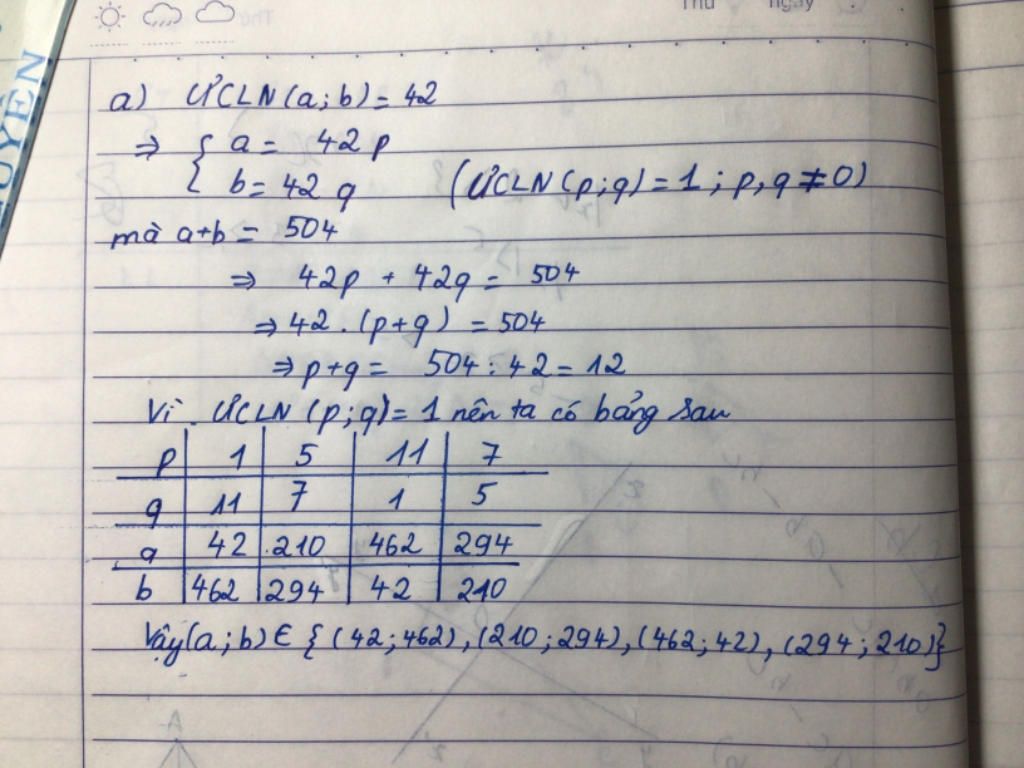 Thứ ngày
UYỀN
a) ƯCLN(a;b) = 42
⇒ { a = 42p
b = 42q (ƯCLN(p;q) = 1 ; p,q ≠ 0)
mà a+b = 504
⇒ 42p + 42q = 504
⇒ 42 . (p+q) = 504
⇒ p+q = 504 : 42 = 12
Vì ƯCLN (p;q) = 1 nên ta có bảng sau
p 1 5 11 7
q 11 7 1 5
a 42 210 462 294
b 462 294 42 210
Vậy (a;b) ∈ { (42;462), (210;294), (462;42), (294;210)}